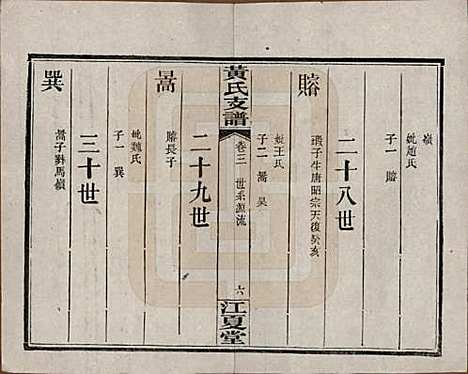 嶺
妣趙氏
子一 賭
二十八世
賭
瑕子生唐昭宗天復癸亥
妣王氏
子二 暠 昊
黃氏支譜
卷三 世系源流
六
江夏堂
二十九世
暠
賭長子
妣魏氏
子一 巽
三十世
巽
暠子斟馬嶺